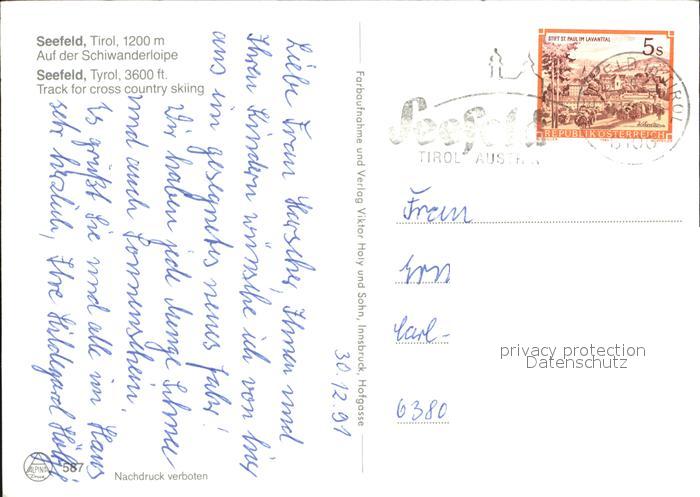 Seefeld, Tirol, 1200 m
Auf der Schiwanderloipe
Seefeld, Tyrol, 3600 ft.
Track for cross country skiing
Liebe Frau Ihnen und
Ihren Kindern wünsche ich von hier
aus ein gesegnetes neues Jahr!
Wir haben jede Menge Schnee
und auch Sonnenschein.
Es grüßt Sie und alle im Haus
sehr herzlich, Ihre Hildegard
30.12.91
Farbaufnahme und Verlag Viktor Holy und Sohn, Innsbruck, Hofgasse
587
Nachdruck verboten
ALPINA
Druck
STIFT ST. PAUL IM LAVANTTAL
5 S
REPUBLIK ÖSTERREICH
Seefeld
TIROL AUSTRIA
Frau
Carl-
6380
privacy protection
Datenschutz